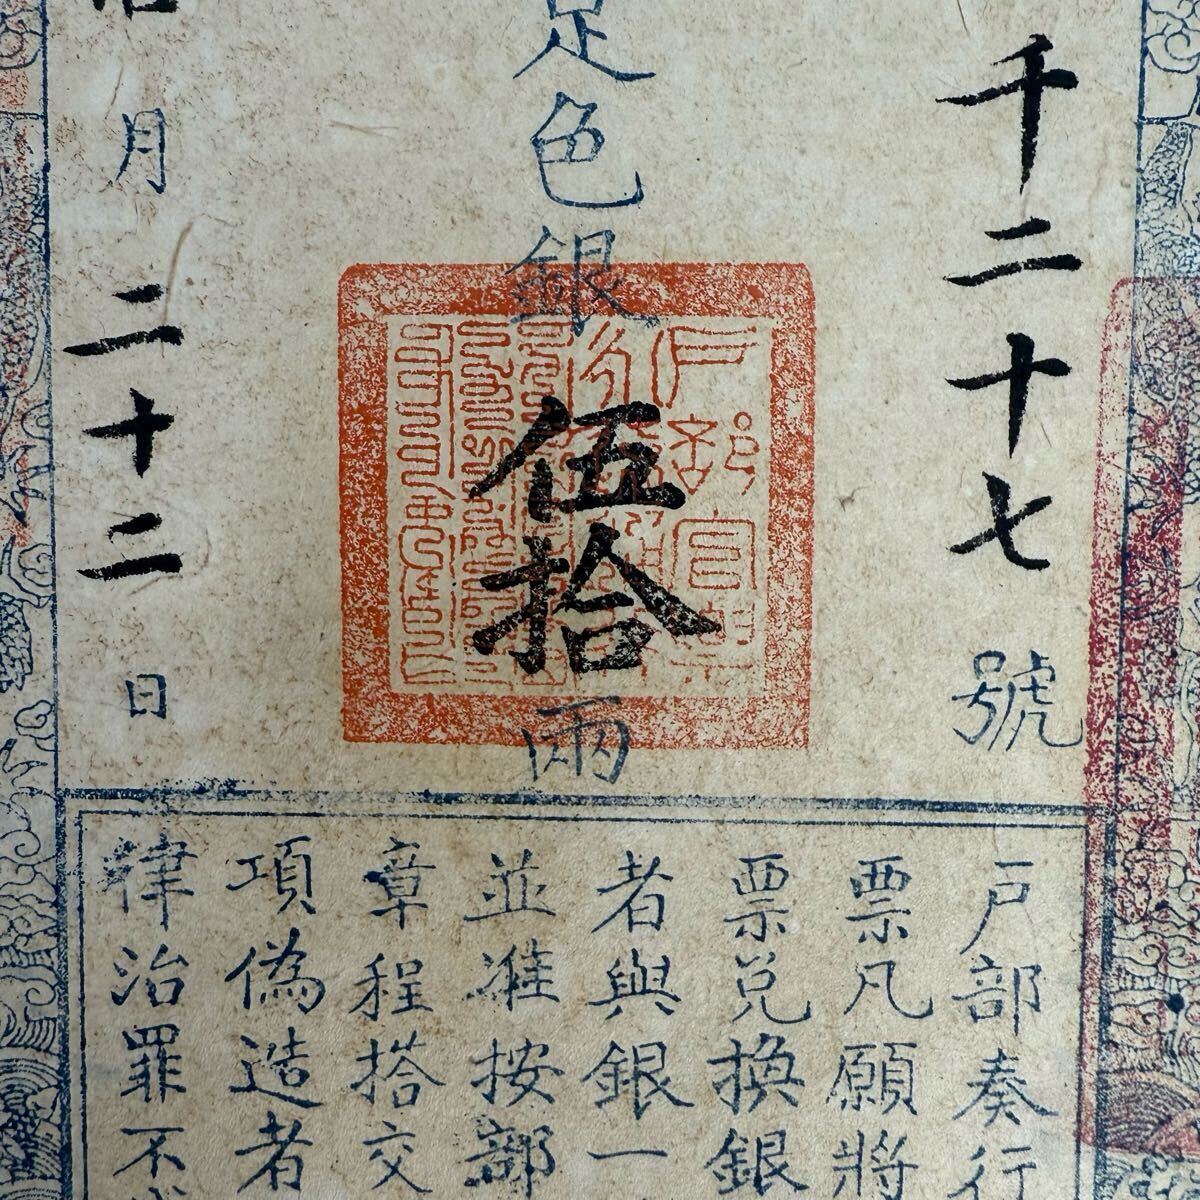 千二十七號
足色銀伍拾兩
月二十二日
戶部官
戶部奏行
票凡願將
票兌換銀
者與銀一
並准按部
章程搭交
項偽造者
律治罪不